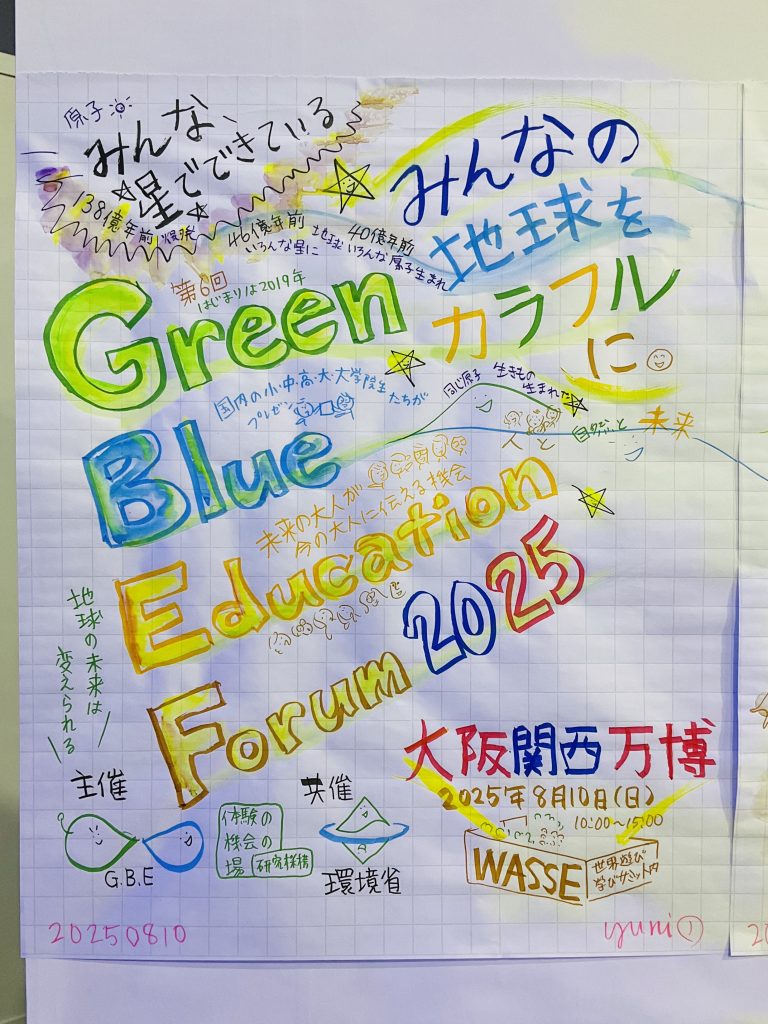 原子
みんな、
星でできている
138億年前 爆発
46億年前 地球 40億年前
いろんな星に いろんな原子生まれ
みんなの
地球を
カラフル
に。
第6回
はじまりは2019年
Green
国内の小・中・高・大・大学院生
たちが
プレゼン
同じ原子 生きもの
生まれた
人と
未来
Blue
未来の大人が
今の大人に伝える機会
Education
Forum 2025
地球の未来は
変えられる
大阪関西万博
2025年8月10日(日)
10:00~15:00
主催
G.B.E
体験の
機会の
場 研究機構
共催
環境省
WASSE
世界遊び
学びサミット内
20250810
yuni①